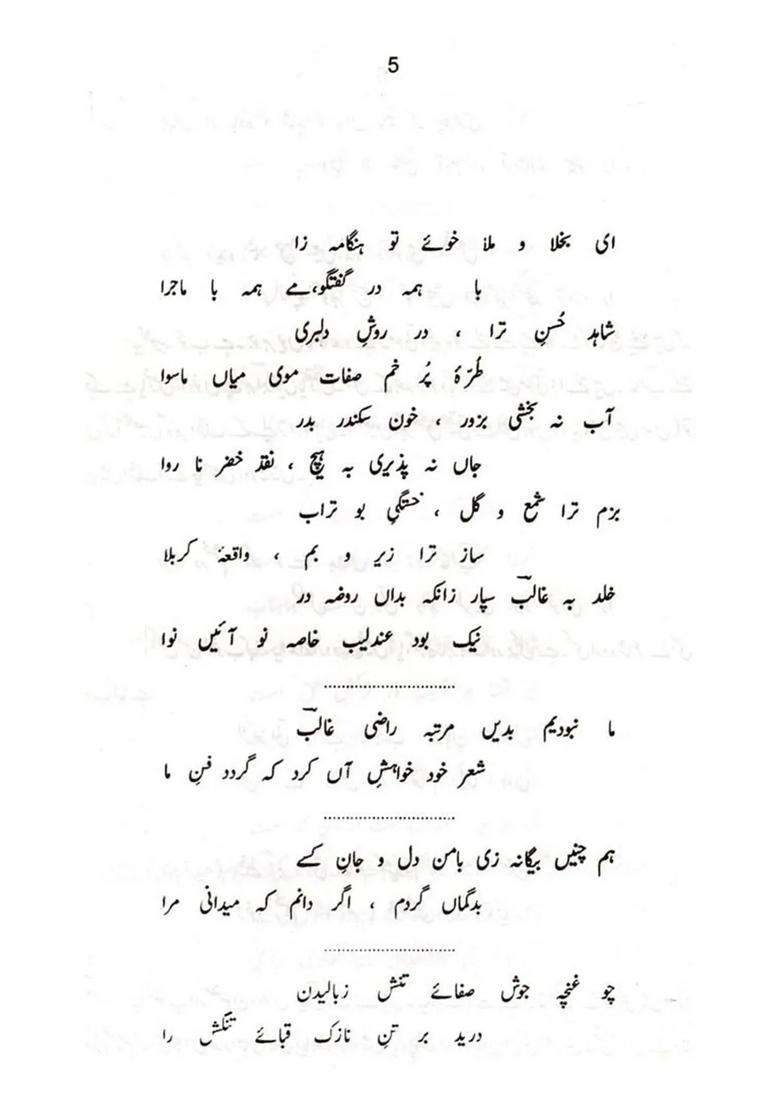 5
ای بخلا و ملا خوئے تو ہنگامہ زا
با ہمہ در گفتگو، مے ہمہ با ماجرا
شاہد حُسنِ ترا ، در روشِ دلبری
طُرّۂ پُر خم صفات موی میاں ماسوا
آب نہ بخشی بزور ، خون سکندر بدر
جاں نہ پذیری بہ ہیچ ، نقدِ خضر نا روا
بزم ترا شمع و گل ، خستگیِ بو تراب
ساز ترا زیر و بم ، واقعۂ کربلا
خلد بہ غالبؔ سپار زانکہ بداں روضہ در
نیک بود عندلیب خاصہ نو آئیں نوا
ما نبودیم بدیں مرتبہ راضی غالبؔ
شعر خود خواہشِ آں کرد کہ گردد فنِ ما
ہم چنیں بیگانہ زی بامن دل و جانِ کسے
بدگماں گردم ، اگر دانم کہ میدانی مرا
چو غنچہ جوش صفائے تنش زبالیدن
درید بر تنِ نازک قبائے تنگش را